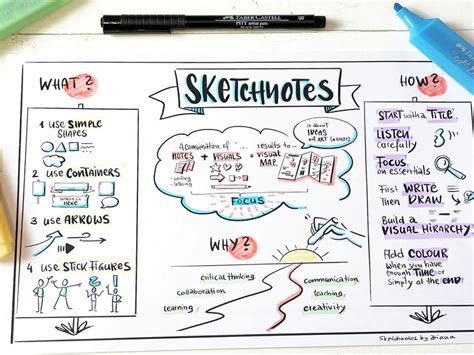 FABER-CASTELL
PITT artist pen
SKETCHNOTES
WHAT?
1 USE SIMPLE
SHAPES
2 USE CONTAINERS
3 USE ARROWS
4 USE STICK FIGURES
A combination of ... results to...
NOTES + VISUALS = VISUAL
MAP
- writing
- lettering
is about
IDEAS
not ART
FOCUS
WHY?
critical thinking
collaboration
learning
communication
teaching
creativity
HOW?
START with a TITLE
LISTEN
carefully
FOCUS
on essentials
First WRITE
Then DRAW
Build a
VISUAL HIRARCHY
Add COLOUR
when you have
enough TIME or
Simply at the END
Sketchnotes by Diana